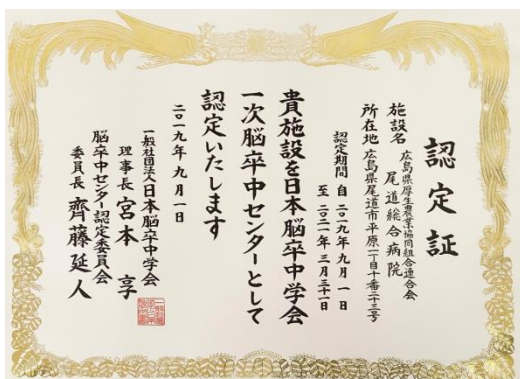 認定証
施設名 広島県厚生農業協同組合連合会
尾道総合病院
所在地 広島県尾道市平原一丁目十番二十三号
認定期間 自 二〇一九年九月一日
至 二〇二一年三月三十一日
貴施設を日本脳卒中学会
一次脳卒中センターとして
認定いたします
二〇一九年九月一日
一般社団法人日本脳卒中学会
理事長 宮本 享
脳卒中センター認定委員会
委員長 齊藤延人